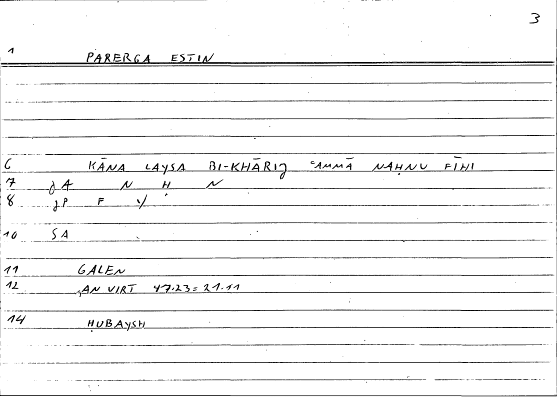 3
1 PARERGA ESTIN
6 KĀNA LAYSA BI-KHĀRIJ ʿAMMĀ NAḤNU FĪHI
7 JA N Ḥ N
8 JP F Y
10 SA
11 GALEN
12 AN VIRT 47.23=21.11
14 ḤUBAYSH